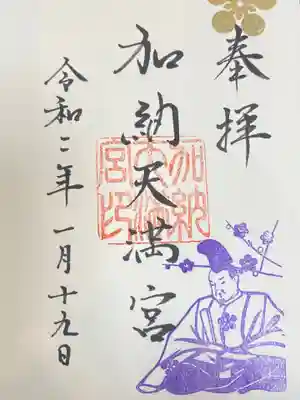 奉拝
加納天満宮
令和二年一月十九日
加納
天満
宮印